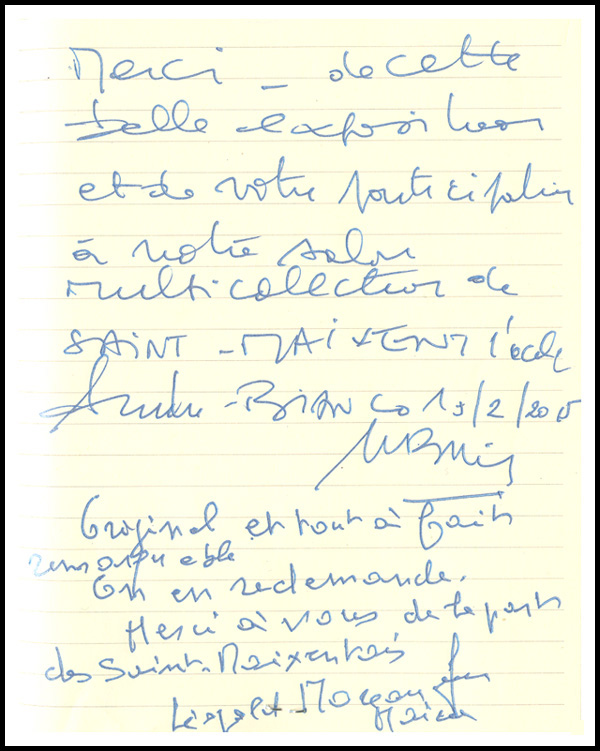 Merci - de cette
belle exposition
et de votre participation
à notre salon
multicollection de
SAINT-MAIXENT l'école
André - BIANCO 15/2/2015
Original et tout à fait
remarquable
On en redemande.
Merci à vous de la part
des Saint-Maixentais
Léopold Moreau
Maire